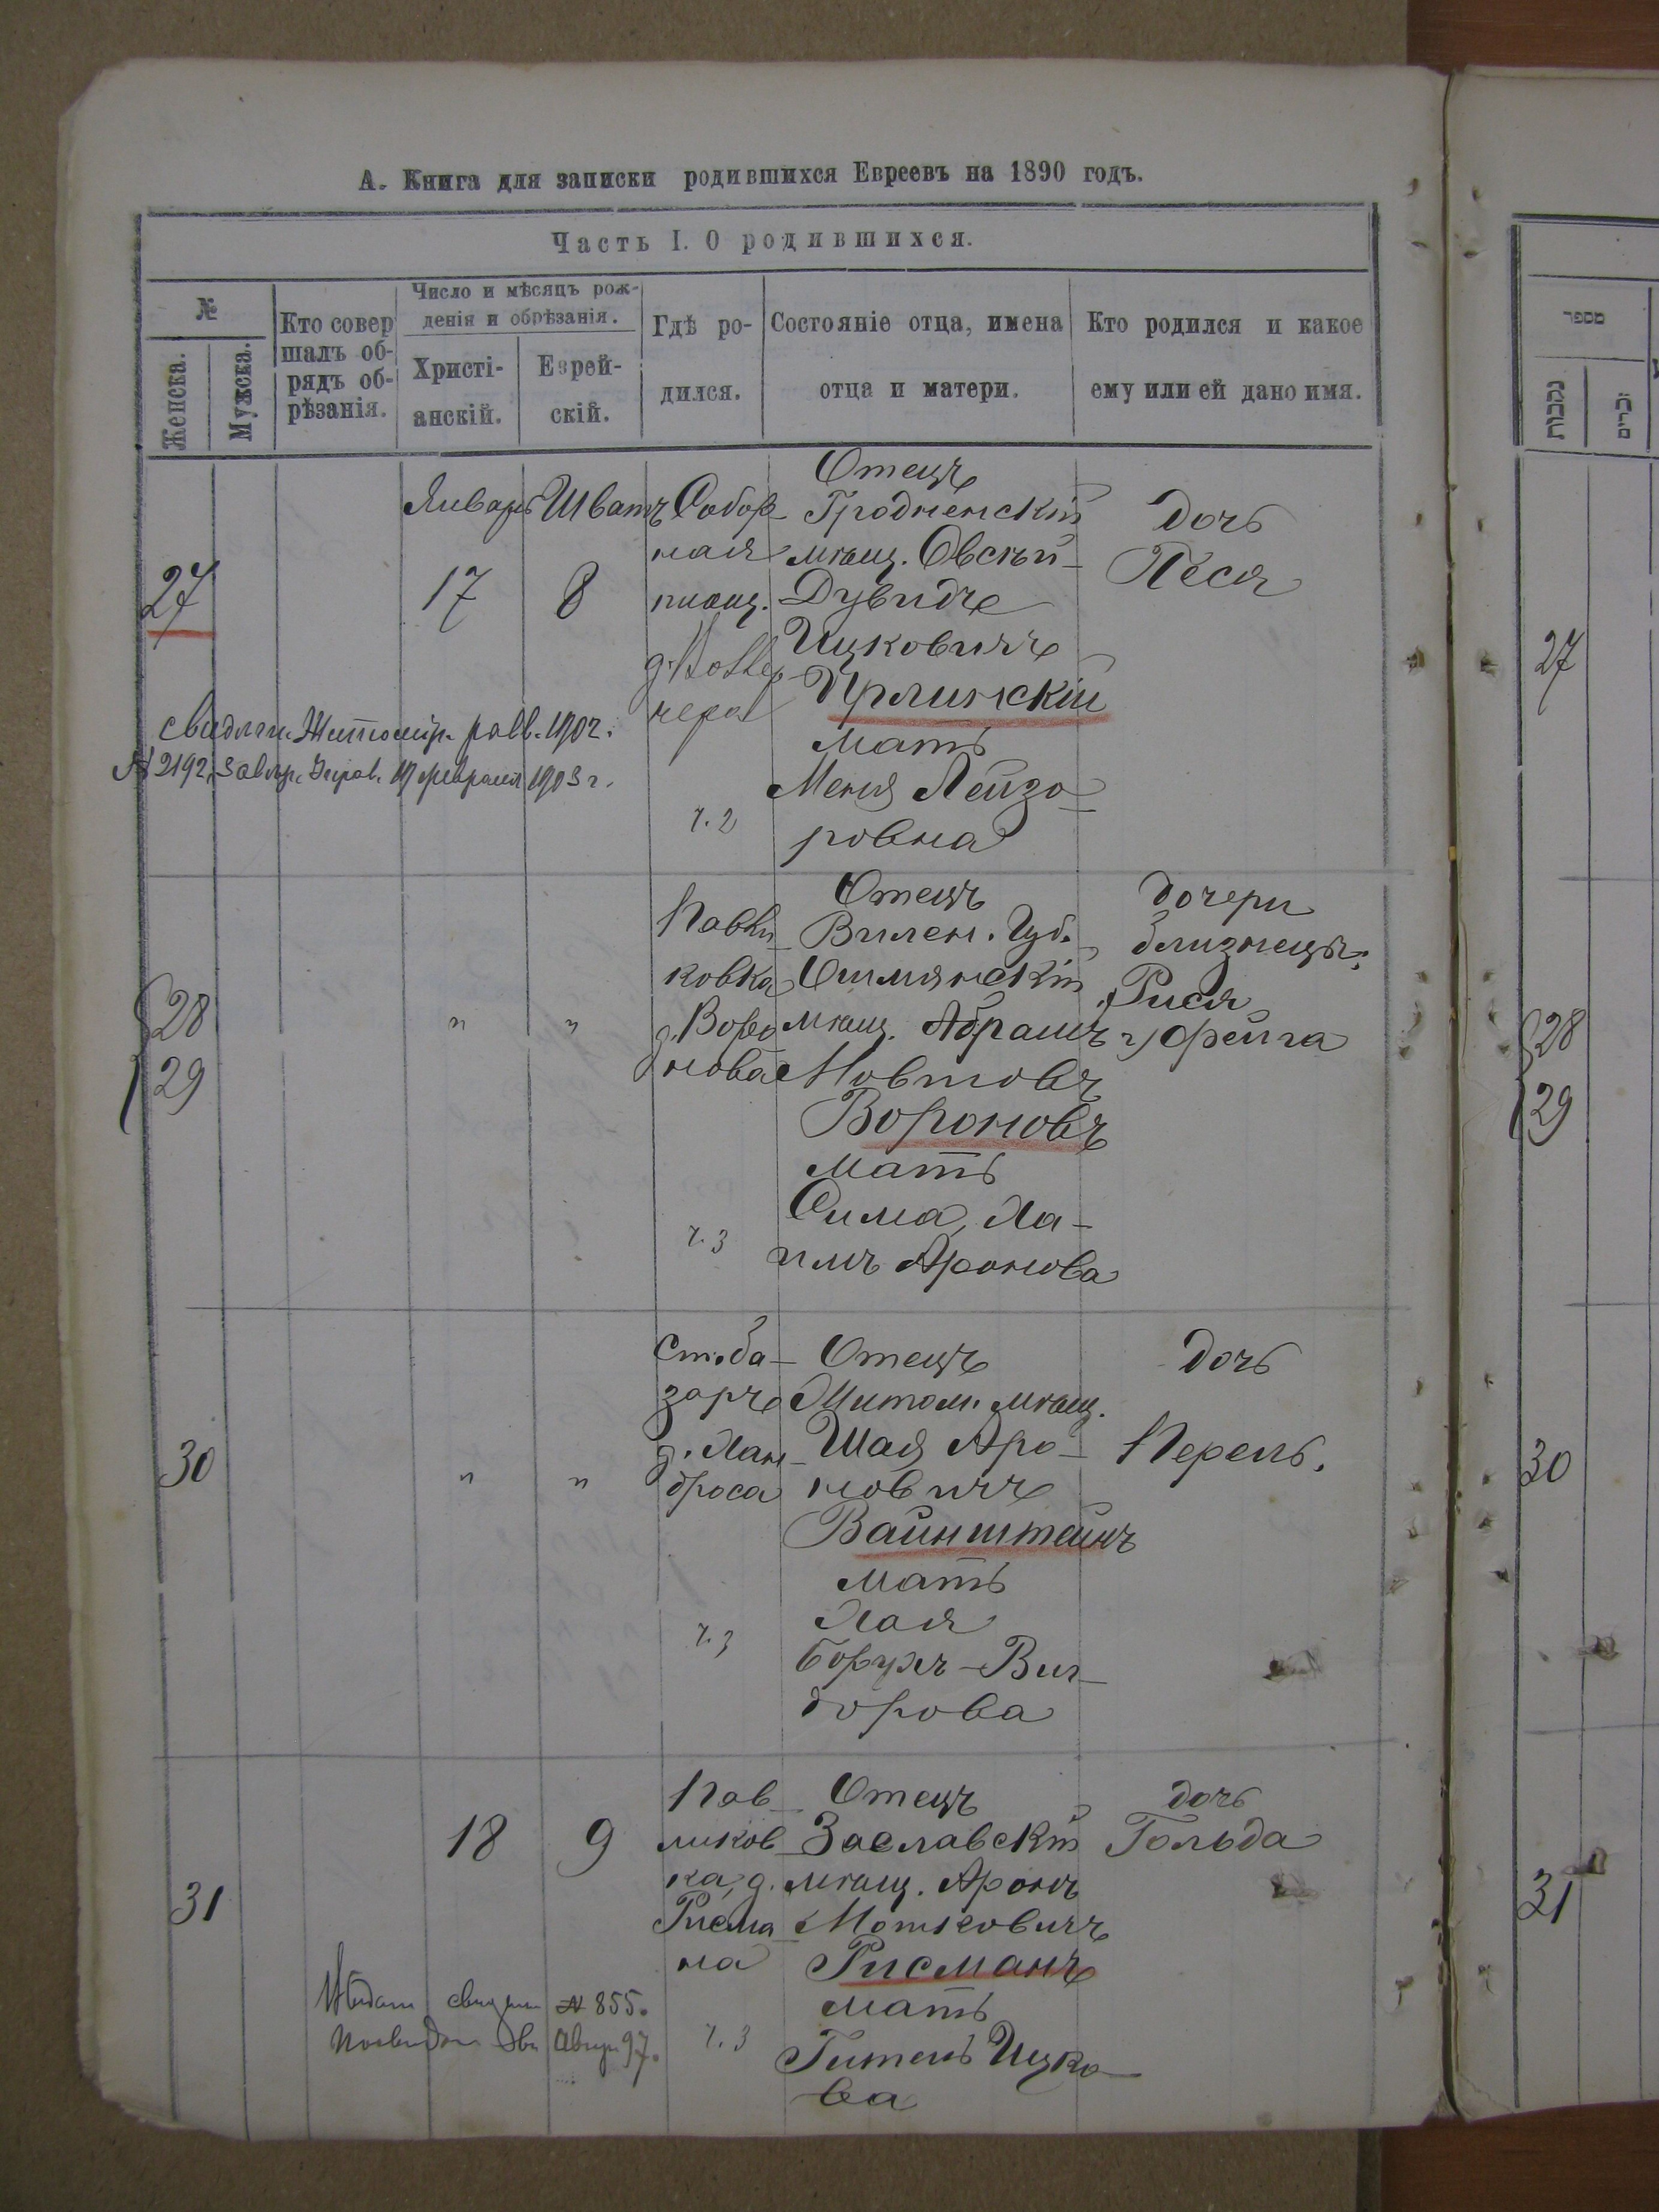 А. Книга для записки родившихся Евреевъ на 1890 годъ.
Часть I. О родившихся.
№
Женска.
Мужска.
Кто совер
шалъ об-
рядъ об-
рѣзанія.
Число и мѣсяцъ рож-
денія и обрѣзанія.
Христі-
анскій.
Еврей-
скій.
Гдѣ ро-
дился.
Состояніе отца, имена
отца и матери.
Кто родился и какое
ему или ей дано имя.
27
Январь
17
Шватъ
8
Собор-
ная
площ.
ч. 2
Отецъ
Гродненскій
мѣщ. Овсѣй-
Дувидъ
Ицковичъ
Ирлинскій
мать
Меня Лейзо-
ровна
дочь
Песя
1902.
№ 2192.
19 февраля 1903 г.
28
29
"
"
Павли-
ковка
д. Воро
нова
ч. 3
Отецъ
Вилен. Губ.
Ошмянскій
мѣщ. Абрамъ
Мовшовъ
Вороновъ
мать
Сима, Ха-
имъ Аронова
дочери
близнецы:
Рися
2) Фейга
30
"
"
Ст. ба-
заръ
д. Лан-
дроса
ч. 3
Отецъ
Житом. мѣщ.
Шая Аро-
новичъ
Вайнштейнъ
мать
Хая
Борухъ-Ви-
дорова
дочь
Перель.
31
18
9
Пав-
ликов-
ка, д.
Рисма-
на
ч. 3
Отецъ
Заславскій
мѣщ. Аронъ
Мошковичъ
Рисманъ
мать
Гитель Ицко-
ва
дочь
Гольда
№ 855.
97.
מספר
נקבות
זכרים
27
28
29
30
31